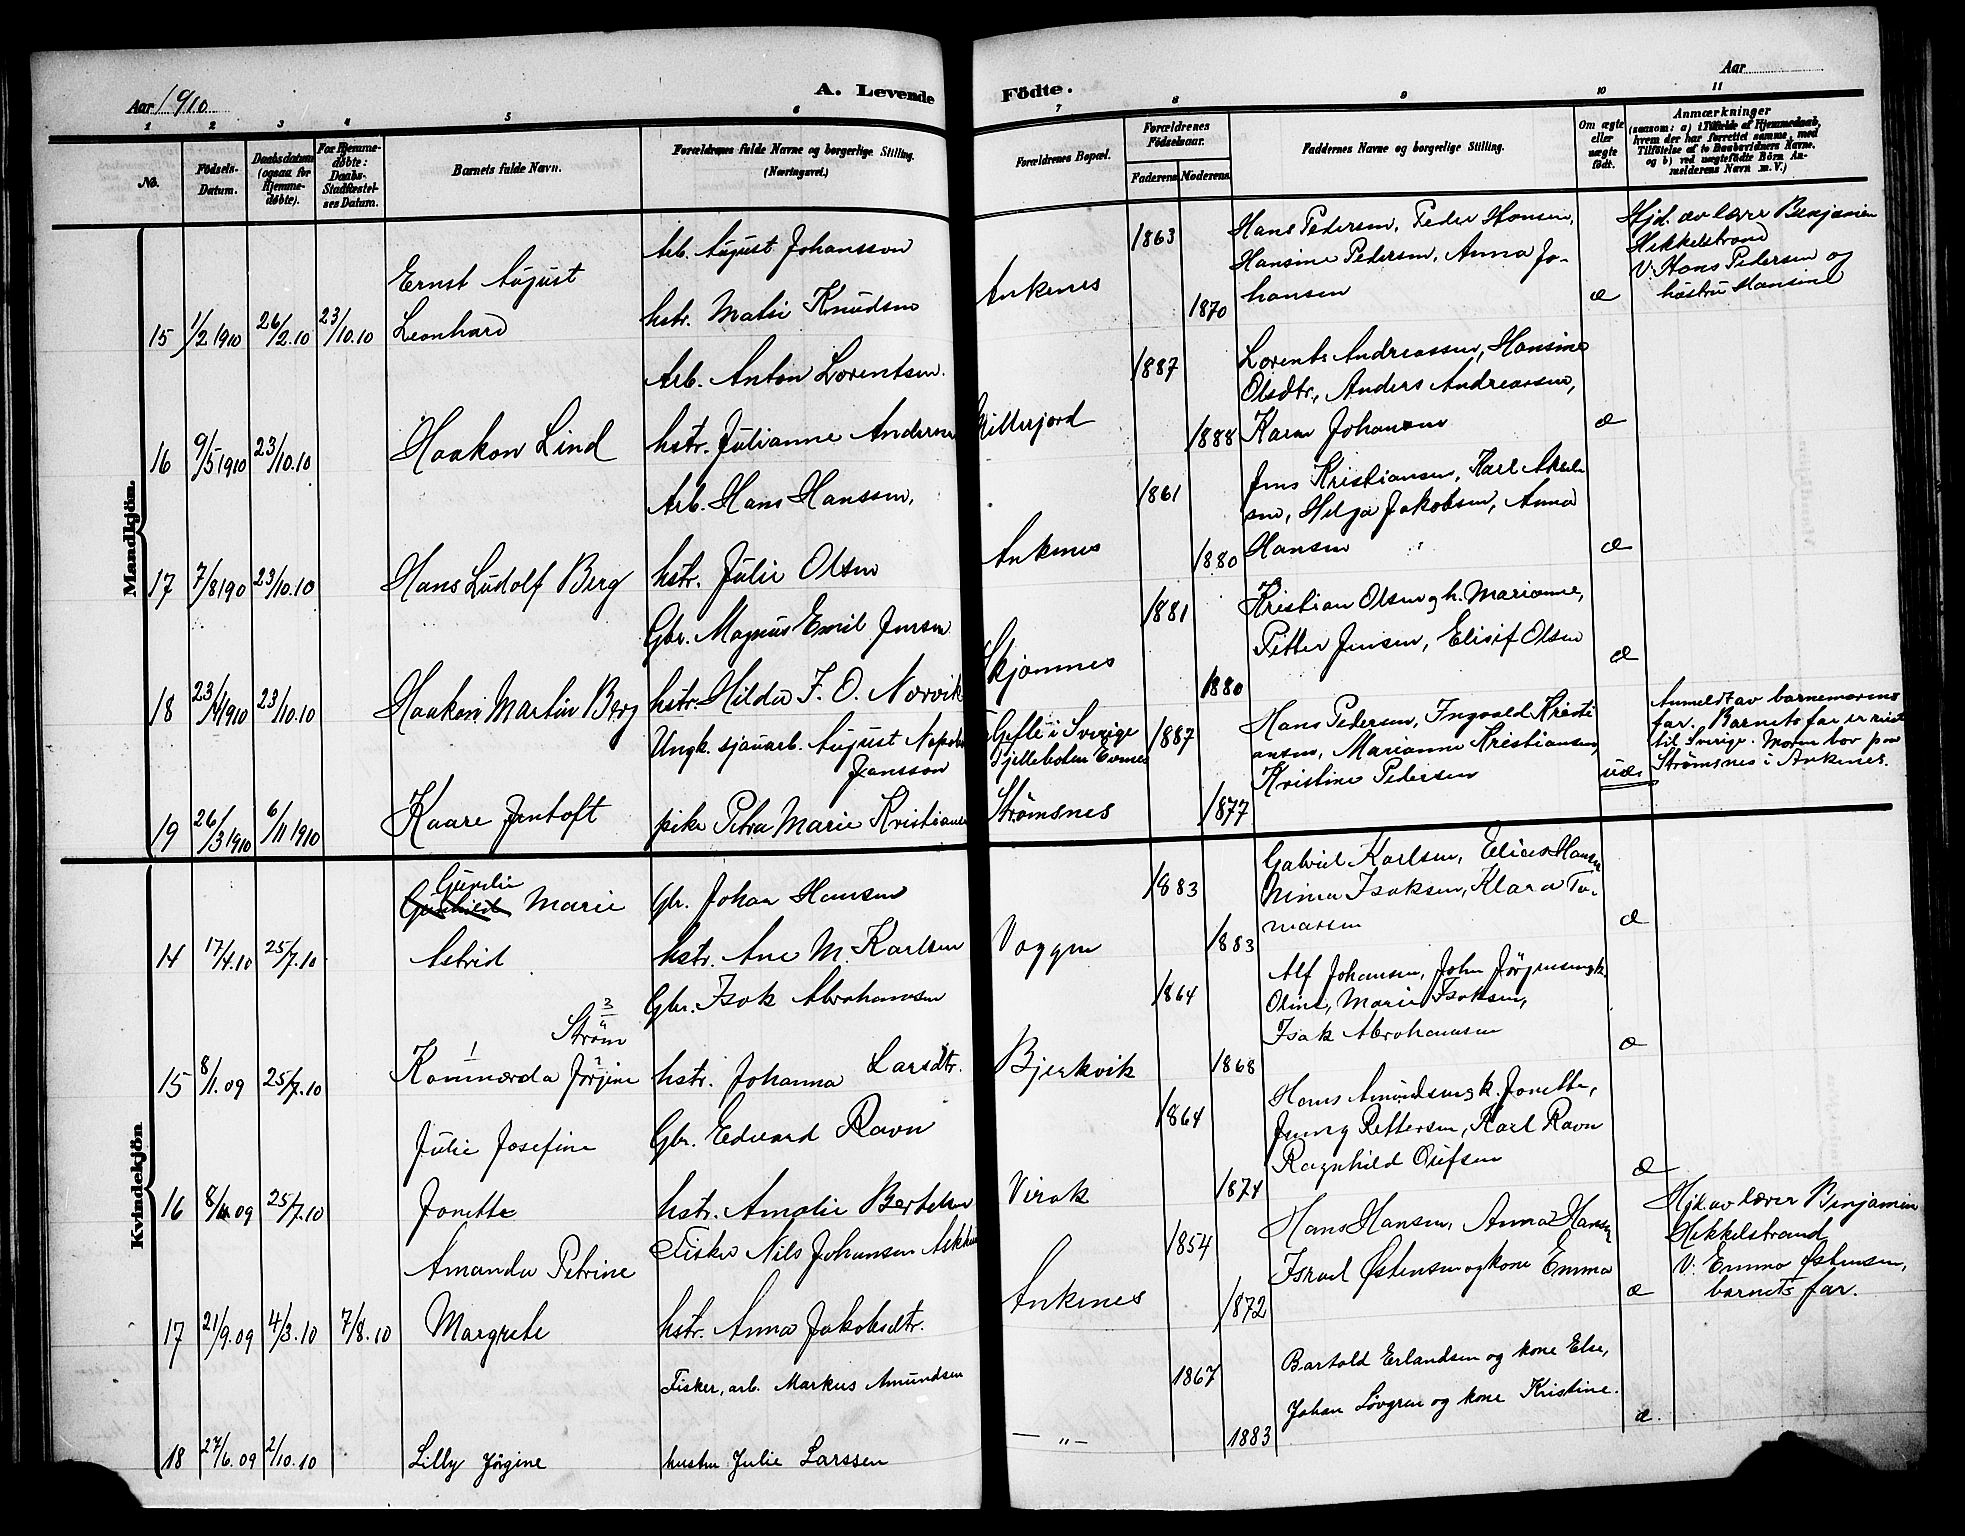 Aar 1910
A. Levende
Födte.
Aar
1 2 3 4 5 6 7 8 9 10 11
No.
Födsels-
Datum.
Daabsdatum
(ogsaa for
Hjemme-
døbte).
For Hjemme-
døbte:
Daabs-
Stadfæstel-
ses Datum.
Barnets fulde Navn.
Forældrenes fulde Navne og borgerlige Stilling.
(Næringsvei.)
Forældrenes Bopæl.
Forældrenes
Födselsaar.
Faderens. Moderens.
Faddernes Navne og borgerlige Stilling.
Om ægte
eller
uægte
født.
Anmærkninger
(saasom: a) i Tilfælde af Hjemmedaab,
hvem der har forrettet samme, med
Tilføielse af to Daabsvidners Navne.
og b) ved uægtefødte Börn An-
melderens Navn m. V.)
Mandkjön.
15 1/2 1910 26/2.10 23/10.10
Ernst August
Leonhard
Arb. August Johansson
hstr. Matsi Knudsen
Ankenes
1863
1870
Hans Pedersen, Peder Hansen,
Hansine Pedersen, Anna Jo-
hansen
æ
Hjd. av lærer Benjamin
Hekkelstrand
V: Hans Pedersen og
hustru Hansine
16 9/5 1910 23/10.10
Haakon Lind
Arb. Anton Lorentsen.
hstr. Julianne Andersen
1887
1888
Lorents Andreassen, Hansine
Olsdtr., Anders Andreassen,
Karen Johansen
æ
17 7/8 190 23/10.10
Hans Ludolf Berg
Arb. Hans Hanssen,
hstr. Julie Olsen
Ankenes
1861
1880
Jens Kristiansen, Karl Aksel-
sen, Helga Jakobsen, Anna
Hansen
æ
18 23/ 1910 23/10.10
Haakon Martin Berg
Gbr. Magnus Emil Jensen
hstr. Hilda F. O. Norvik
Skjomnes
1881
1880
Kristian Olsen og h. Marianne,
Petter Jensen, Elisif Olsen
æ
19 26/3 1910 6/11 1910
Kaare Jentoft
Ungk. sjauarb. August
Jansson
pike Petra Marie Kristiansen
Gefle i Sverige
Strømsnes
1887
1877
Hans Pedersen, Ingvald Kristi-
ansen, Marianne Kristiansen,
Kristine Pedersen
uæ
Anmeldt av barnemorens
far. Barnets far er reist
til Sverige. Moren bor paa
Strømsnes i Ankenes.
Kvindekjön
14 17/4.10 25/7.10
Gunelie
Gunhild Marie
Astrid
Gbr. Johan Hansen
hstr. Ane M. Karlsen
Voggen
1883
1883
Gabriel Karlsen, Elias Hansen
Mina Isaksen, Klara To-
massen
æ
15 8/1.09 25/7.10
3
Strøm
1 2
Kornmærda Jørgine
Gbr. Isak Abrahamsen
hstr. Johanna Larsdtr.
Bjerkvik
1864
1868
Alf Johansen, John Jørgensen og k.
Oline, Marie Isaksen,
Isak Abrahamsen
æ
16 8/11.09 25/7.10
Julie Josefine
Jonette
Gbr. Edvard Ravn
hstr. Amalie Bertelsen
Virak
1864
1874
Hans Amundsen og k. Jonette,
Jenny Pettersen, Karl Ravn
Ragnhild Olufsen
æ
17 21/9.09 4/3.10 7/8.10
Amanda Petrine
Margrete
Fisker Nils Johansen
hstr. Anna Jakobsdtr.
Ankenes
1854
1872
Hans Hansen, Anna Hansen
Israel Østensen og kone Emma
æ
Hjd. av lærer Benjamin
Hekkelstrand
V. Emma Østensen,
barnets far.
18 27/6.09 2/10.10
Lilly Jørgine
Fisker, arb. Markus Amundsen
hustru Julie Larssen
— „ —
1867
1883
Bartold Erlandsen og kone Else,
Johan Løvgren og kone Kristine.
æ.